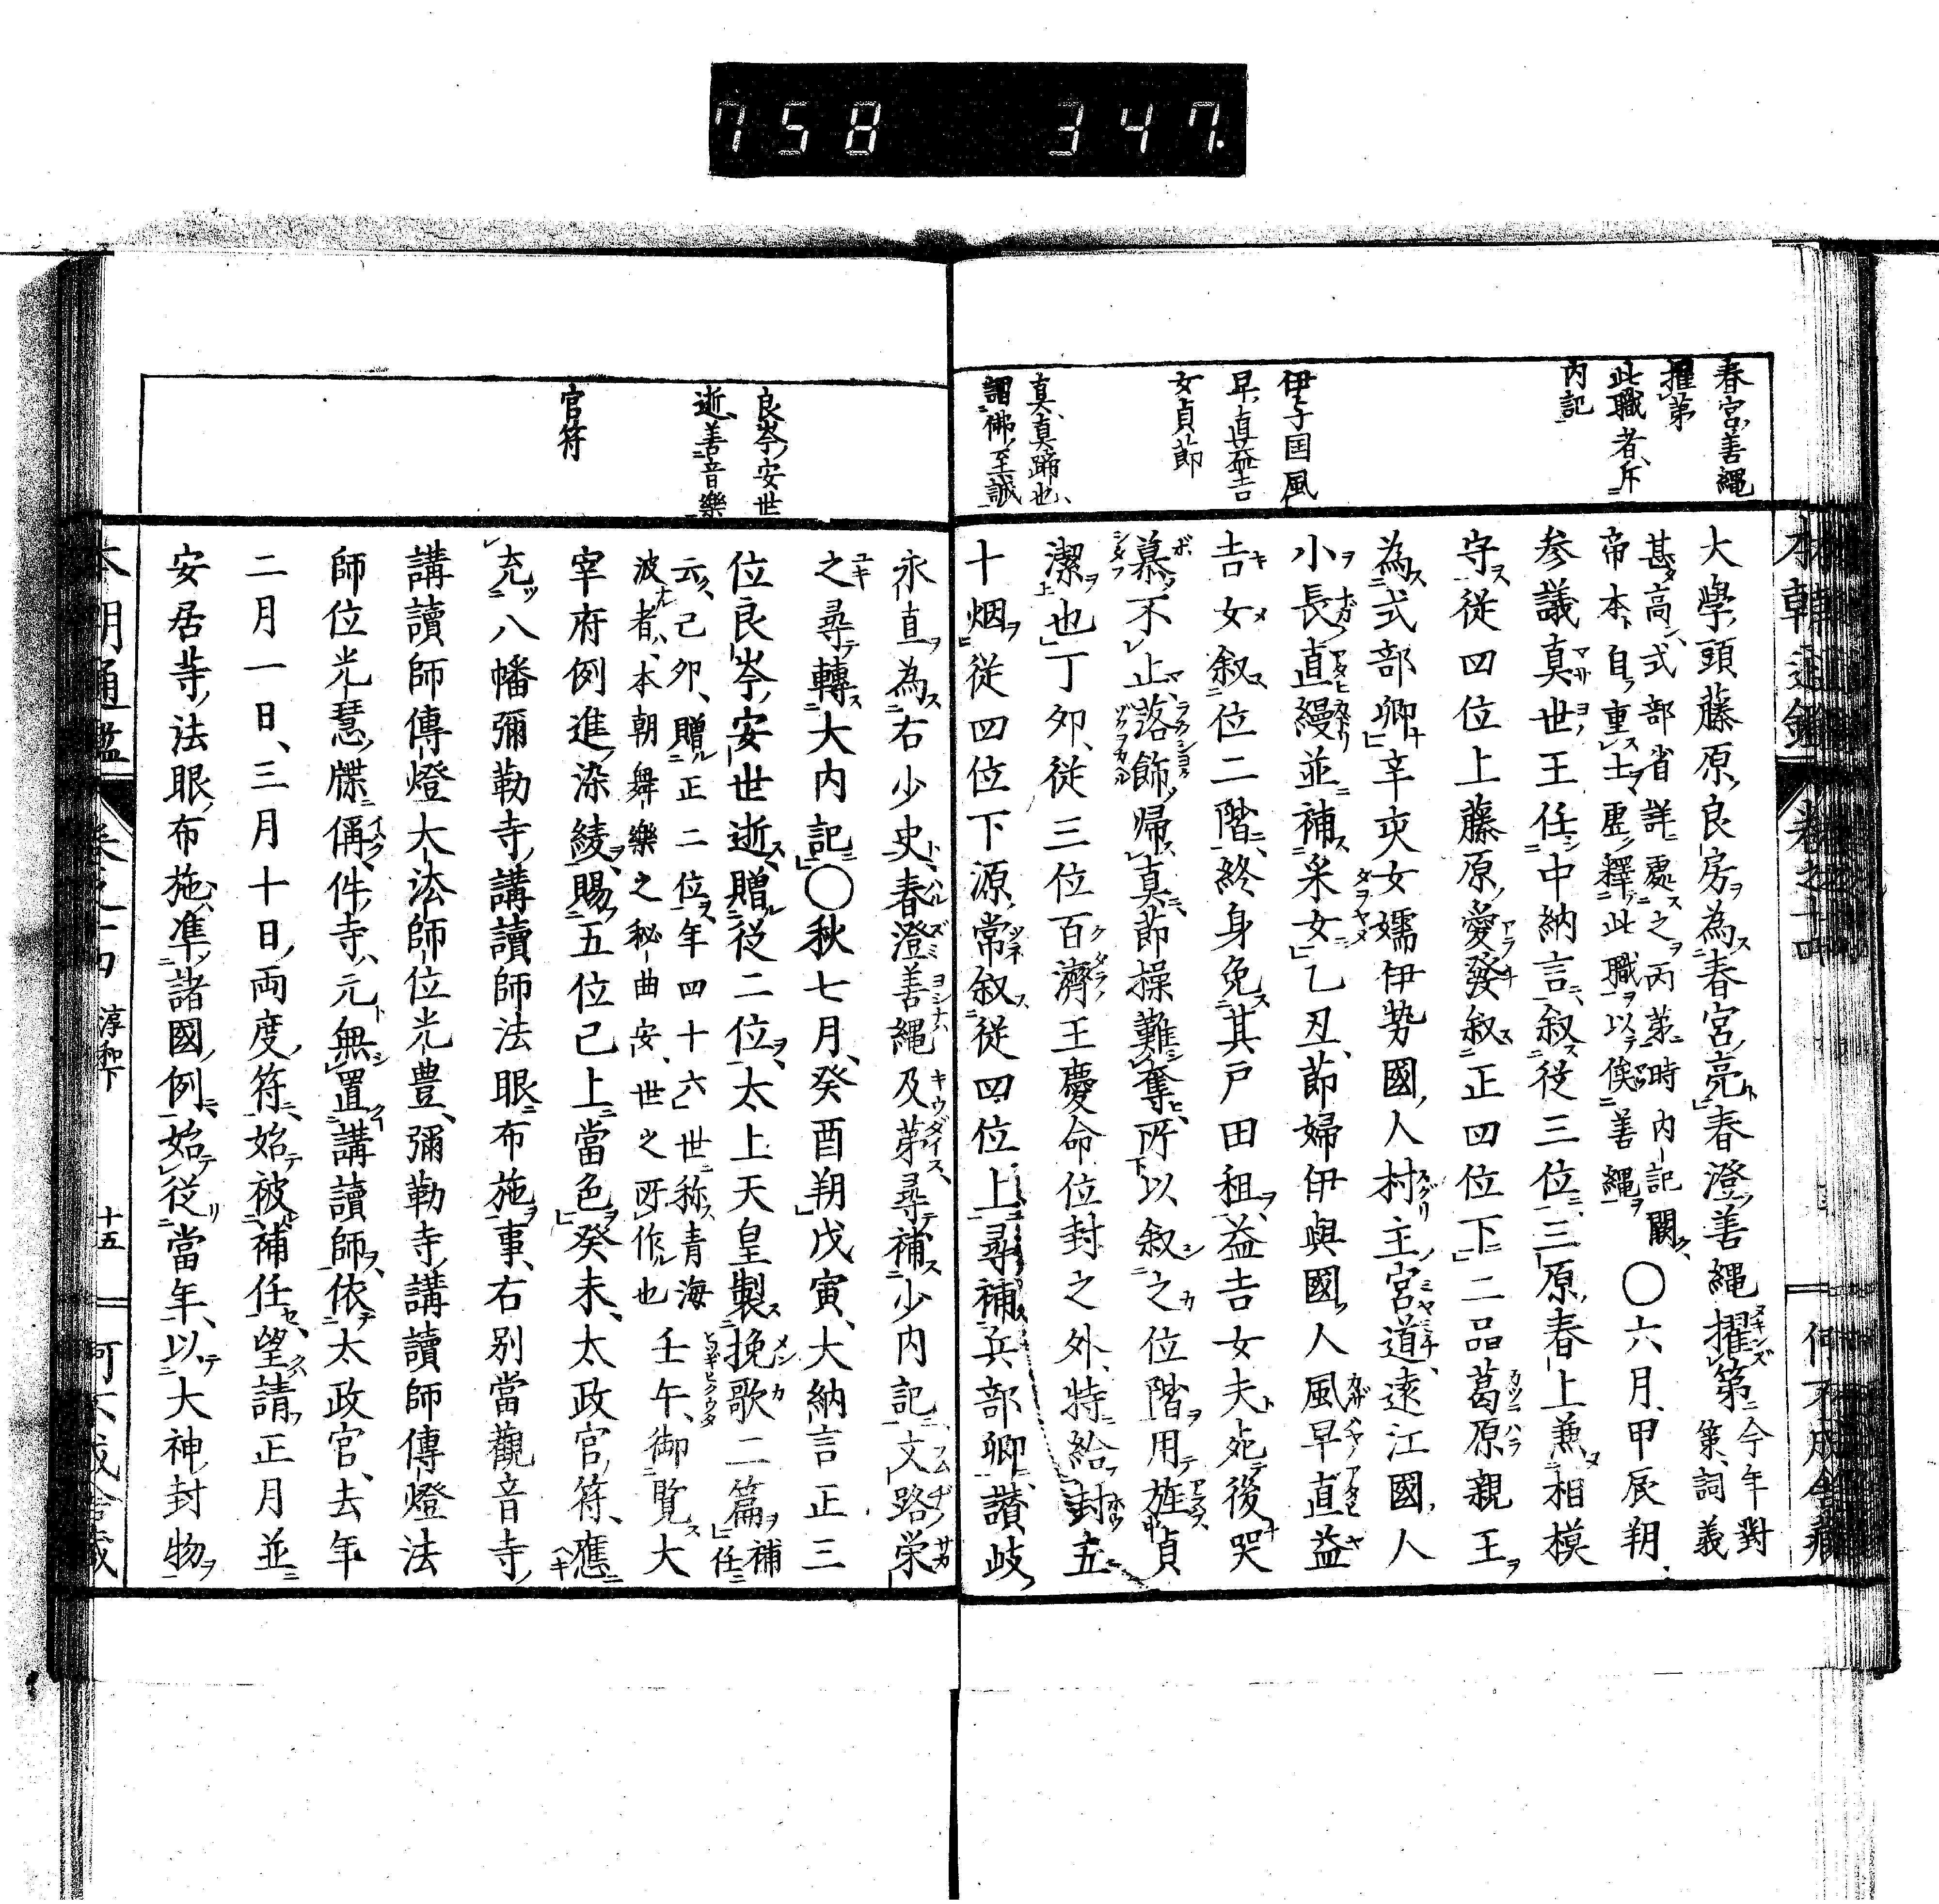 758 347.
春宮善縄
擢第
此職者斥
内記
伊予国風
早直益吉
女貞節
真真蹄也
謂佛至誠
大學頭藤原良房為春宮亮春澄善縄擢第今年對
策詞義
甚高式部省詳處之丙第時内記闕
帝本自重士歴釋此職以俟善縄
○六月甲辰朔
参議真世王任中納言叙從三位三原春上兼相模
守從四位上藤原愛發叙正四位下二品葛原親王
為式部卿辛亥女嬬伊勢國人村主宮道遠江國人
小長直縵並補采女乙丑節婦伊與國人風早直益
吉女叙位二階終身免其戸田租益吉女夫死後哭
慕不止落飾歸真節操難奪所以叙之位階用旌貞
潔也丁夘従三位百濟王慶命位封之外特給封五
十烟従四位下源常叙従四位上尋補兵部卿讃岐
良岑安世
逝善音樂
官符
永直為右少史春澄善縄及第尋補少内記文路栄
之尋轉大内記○秋七月癸酉朔戊寅大納言正三
位良岑安世逝贈従二位太上天皇製挽歌二篇補
任
云己夘贈正二位年四十六世称青海
波者本朝舞樂之秘曲安世之所作也
壬午御覧大
宰府例進染綾賜五位己上當色癸未太政官符應
充八幡彌勒寺講讀師法眼布施事右別當觀音寺
講讀師傳燈大法師位光豊彌勒寺講讀師傳燈法
師位光慧牒偁件寺元無置講讀師依太政官去年
二月一日三月十日両度符始被補任望請正月並
安居等法眼布施准諸國例始従當年以大神封物
本朝通鑑 巻之十四 淳和下 十五